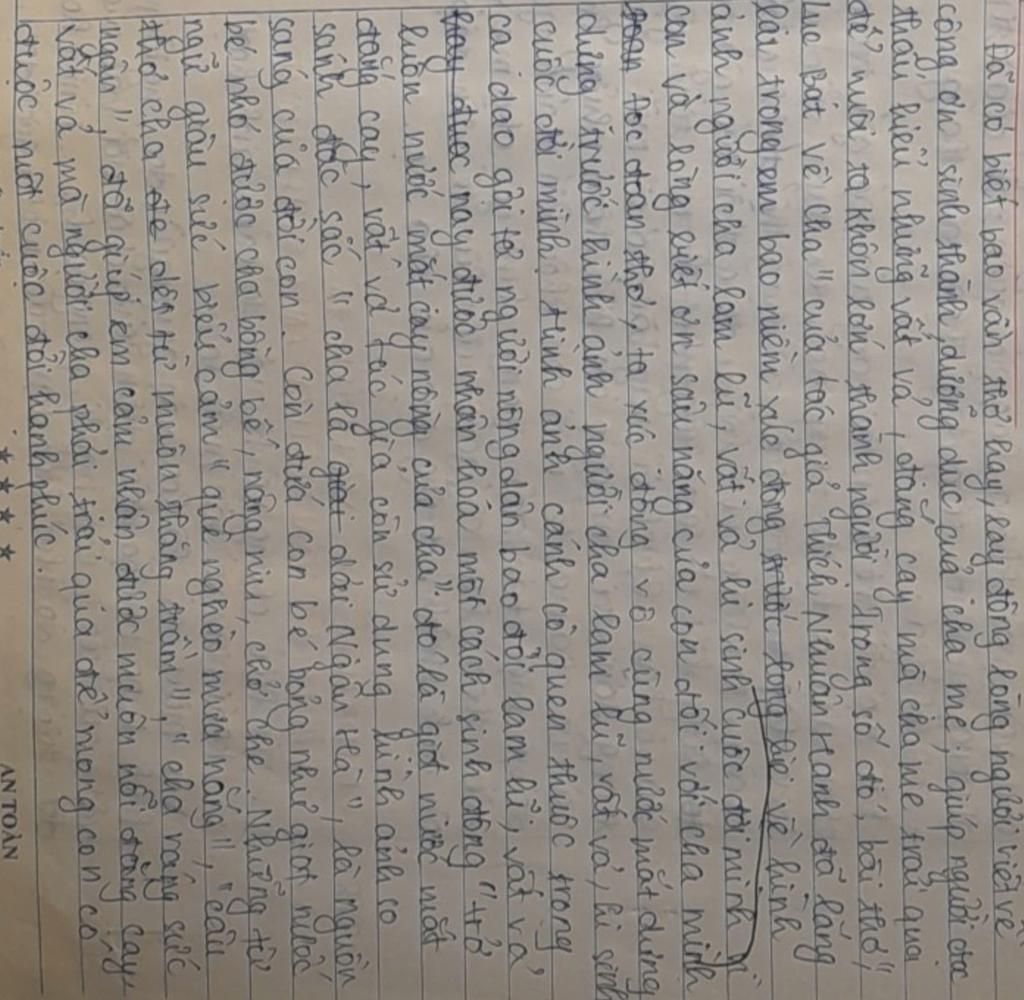 Đã có biết bao vần thơ hay, lay động lòng người viết về
công ơn sinh thành, dưỡng dục của cha mẹ, giúp người đọc
thấu hiểu những vất vả, đắng cay mà cha mẹ trải qua
để nuôi ta khôn lớn thành người. Trong số đó, bài thơ "
Lục bát về cha" của tác giả Thích Nhuận Hạnh đã lắng
lại trong em bao niềm xúc động về hình
ảnh người cha lam lũ, vất vả hi sinh cuộc đời mình vì
con và lòng biết ơn sâu nặng của con đối với cha mình
Đọc đoạn thơ, ta xúc động vô cùng nước mắt dưng
dưng trước hình ảnh người cha lam lũ, vất vả, hi sinh
cuộc đời mình. Hình ảnh cánh cò quen thuộc trong
ca dao gợi tả người nông dân bao đời lam lũ, vất vả
nay được nhân hóa một cách sinh động "từ
nước mắt cay nồng của cha" đó là giọt nước mắt
đắng cay, vất vả tác giả còn sử dụng hình ảnh so
sánh đặc sắc "cha là dải Ngân Hà", là nguồn
sáng của đời con. Còn đứa con bé bỏng như giọt nước
bé nhỏ được cha bồng bế, nâng niu, chở che. Những từ
ngữ giàu sức biểu cảm "quê nghèo mưa nắng", "câu
thơ cha dệt từ muôn thăng trầm", "cha vắng sức
ngân", đã giúp em cảm nhận được muôn nỗi đắng cay,
vất vả mà người cha phải trải qua để mong con có
được một cuộc đời hạnh phúc.
★ ★ ★ ★ AN TOÀN